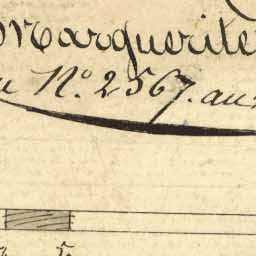 Marguerite
N.º 2567. au
5